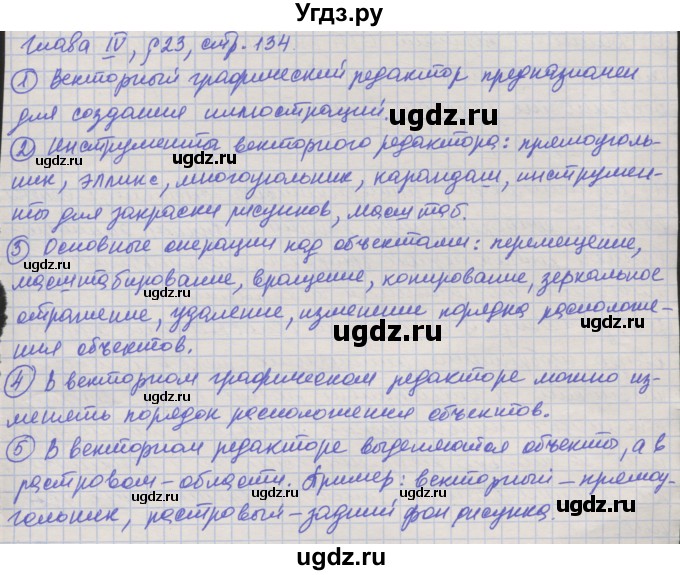 Угдз.ру
Глава IV, §23, стр. 134.
① Векторный графический редактор предназначен
для создания иллюстраций.
② Инструменты векторного редактора: прямоуголь-
ник, эллипс, многоугольник, карандаш, инструмен-
ты для закраски рисунков, масштаб.
③ Основные операции над объектами: перемещение,
масштабирование, вращение, копирование, зеркальное
отражение, удаление, изменение порядка расположе-
ния объектов.
④ В векторном графическом редакторе можно из-
менять порядок расположения объектов.
⑤ В векторном редакторе выделяются объекты, а в
растровом – области. Пример: векторный – прямоу-
гольник, растровый – задний фон рисунка.
ugdz.ru
ugdz.ru
ugdz.ru
ugdz.ru
ugdz.ru
ugdz.ru
ugdz.ru
ugdz.ru
ugdz.ru
ugdz.ru
ugdz.ru
ugdz.ru
ugdz.ru